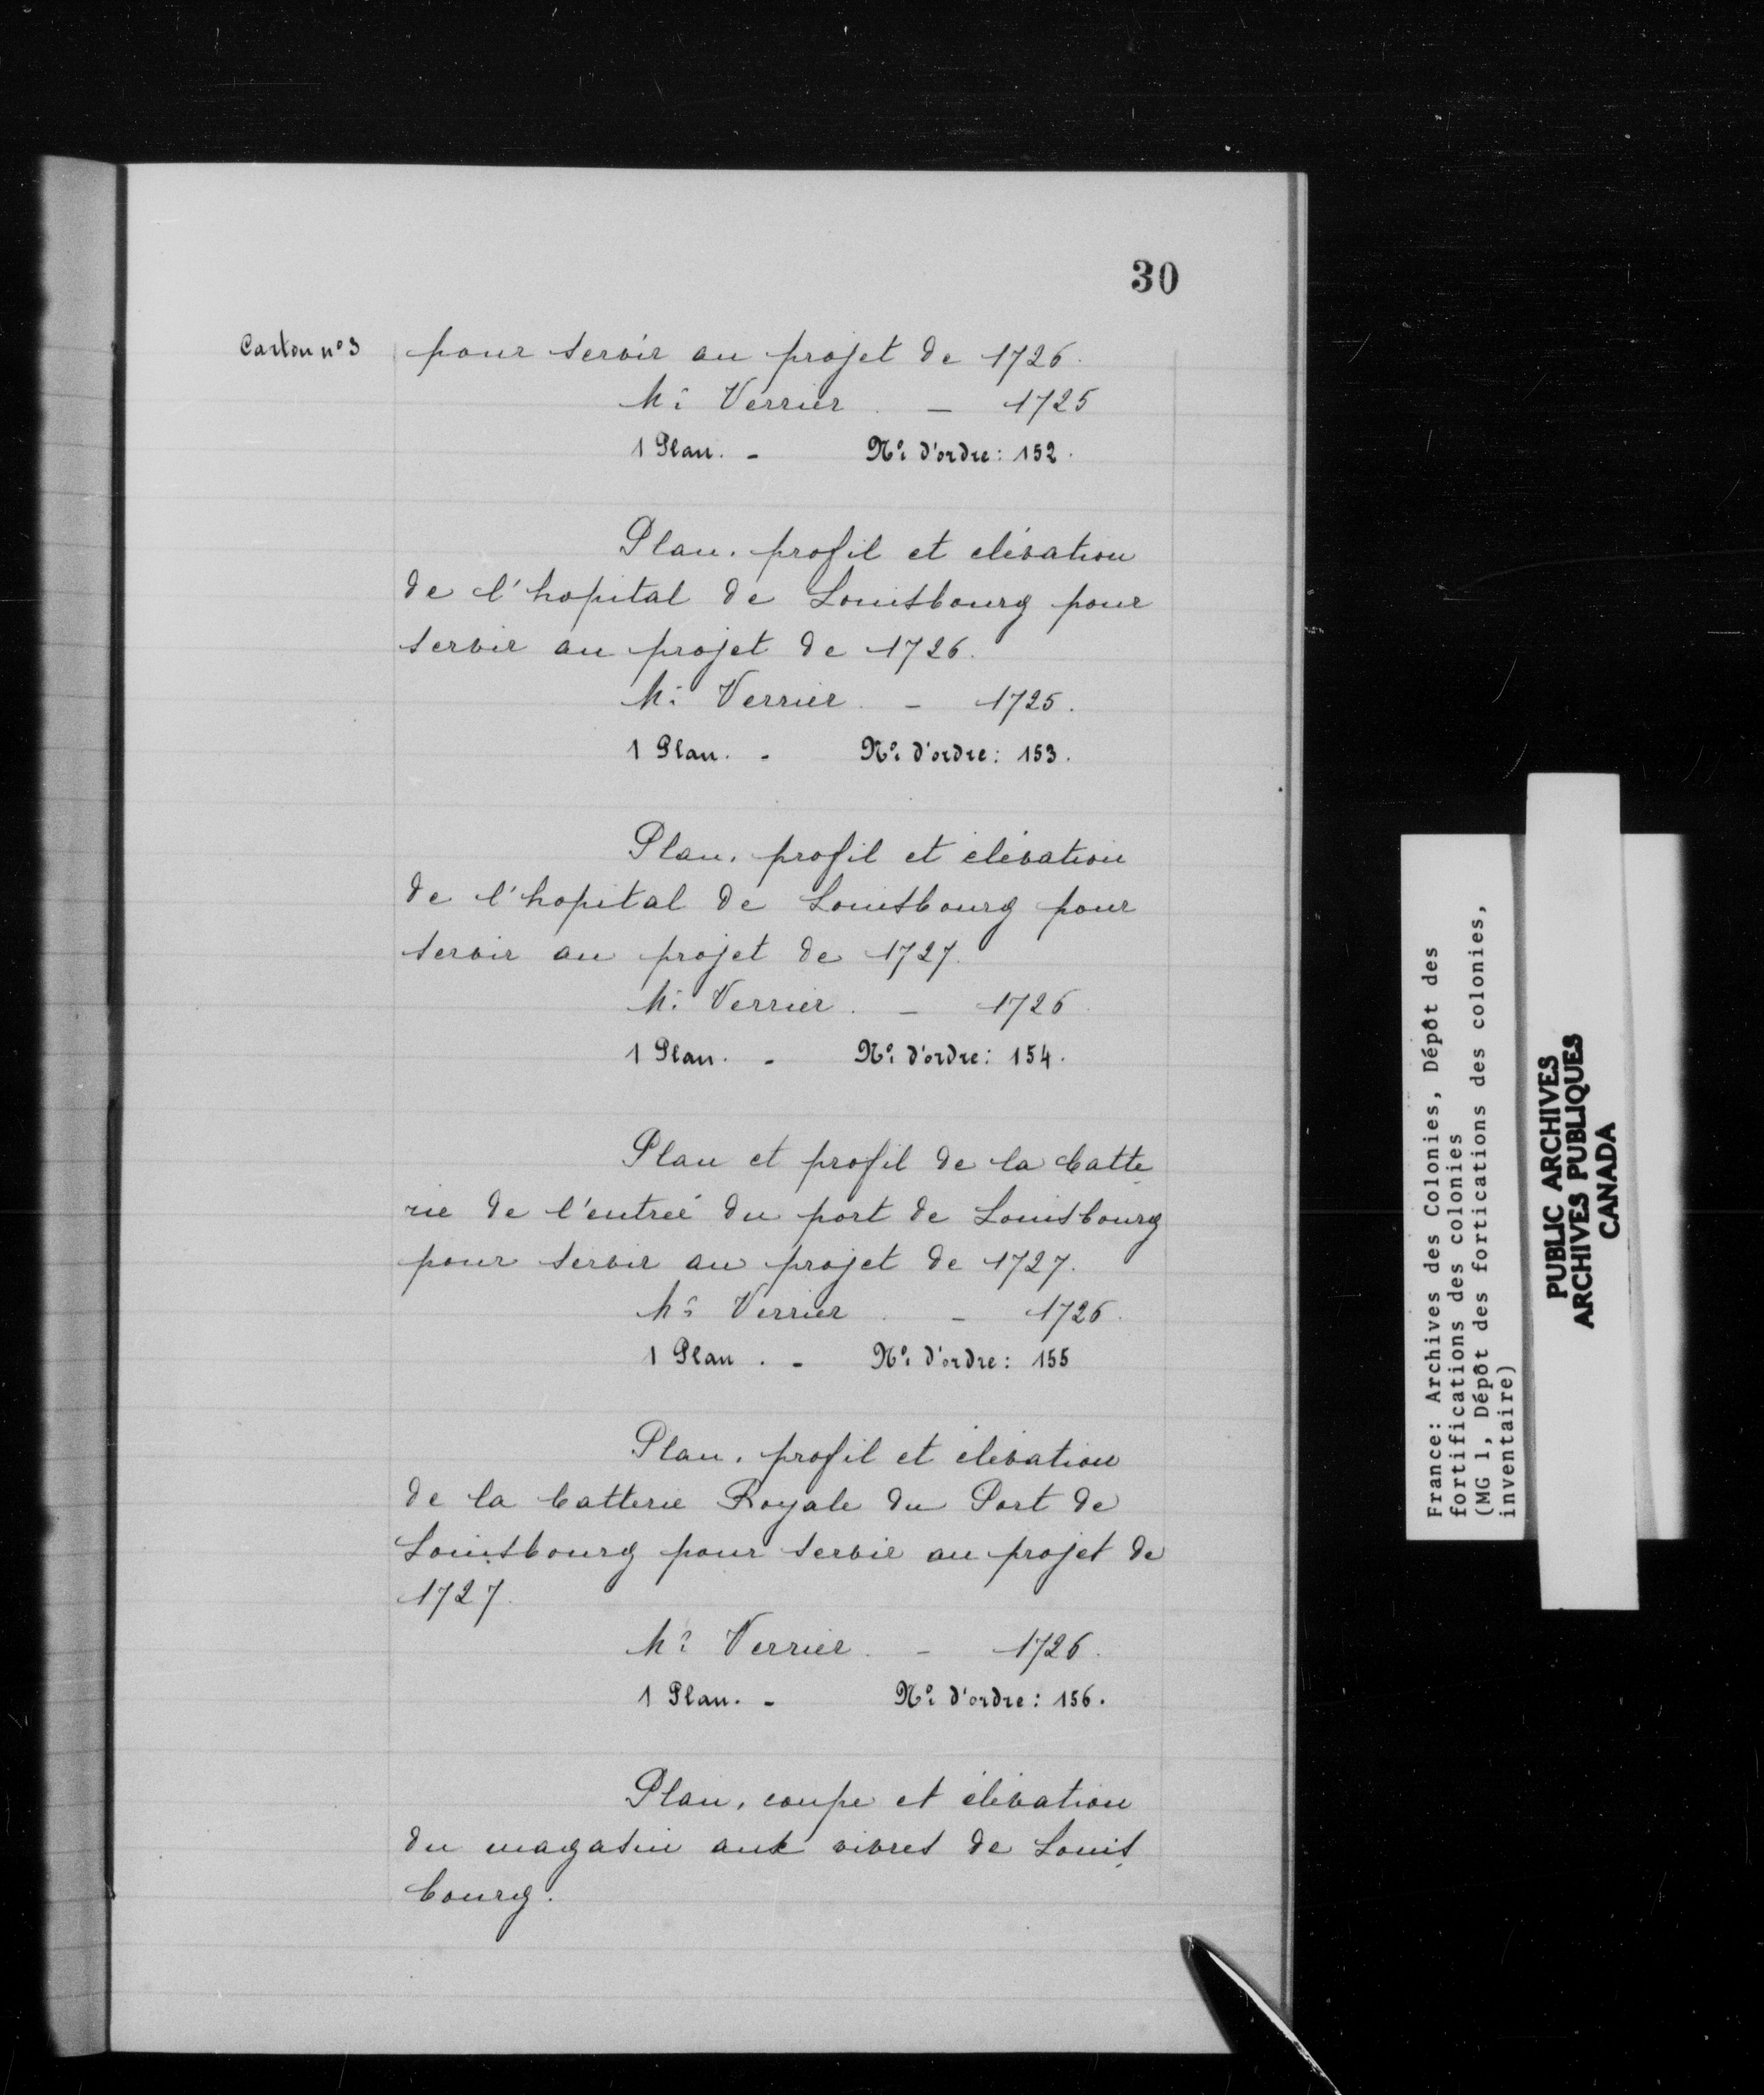 30
Carton nº 3
pour servir au projet de 1726.
Mr Verrier. - 1725
1 Plan. - Nº d'ordre: 152.
Plan, profil et elévation
de l'hopital de Louisbourg pour
servir au projet de 1726.
Mr Verrier. - 1725.
1 Plan. - Nº d'ordre: 153.
Plan, profil et élévation
de l'hopital de Louisbourg pour
servir au projet de 1727.
Mr Verrier. - 1726
1 Plan. - Nº d'ordre: 154.
Plan et profil de la batte
rie de l'entreé du port de Louisbourg
pour servir au projet de 1727.
Mr Verrier. - 1726.
1 Plan. - Nº d'ordre: 155
Plan, profil et élévation
de la batterie Royale du Port de
Louisbourg pour servir au projet de
1727.
Mr Verrier. - 1726.
1 Plan. - Nº d'ordre: 156.
Plan, coupe et élévation
du magasin aux vivres de Louis
bourg.
France: Archives des Colonies, Dépôt des
fortifications des colonies
(MG 1, Dépôt des fortications des colonies,
inventaire)
PUBLIC ARCHIVES
ARCHIVES PUBLIQUES
CANADA